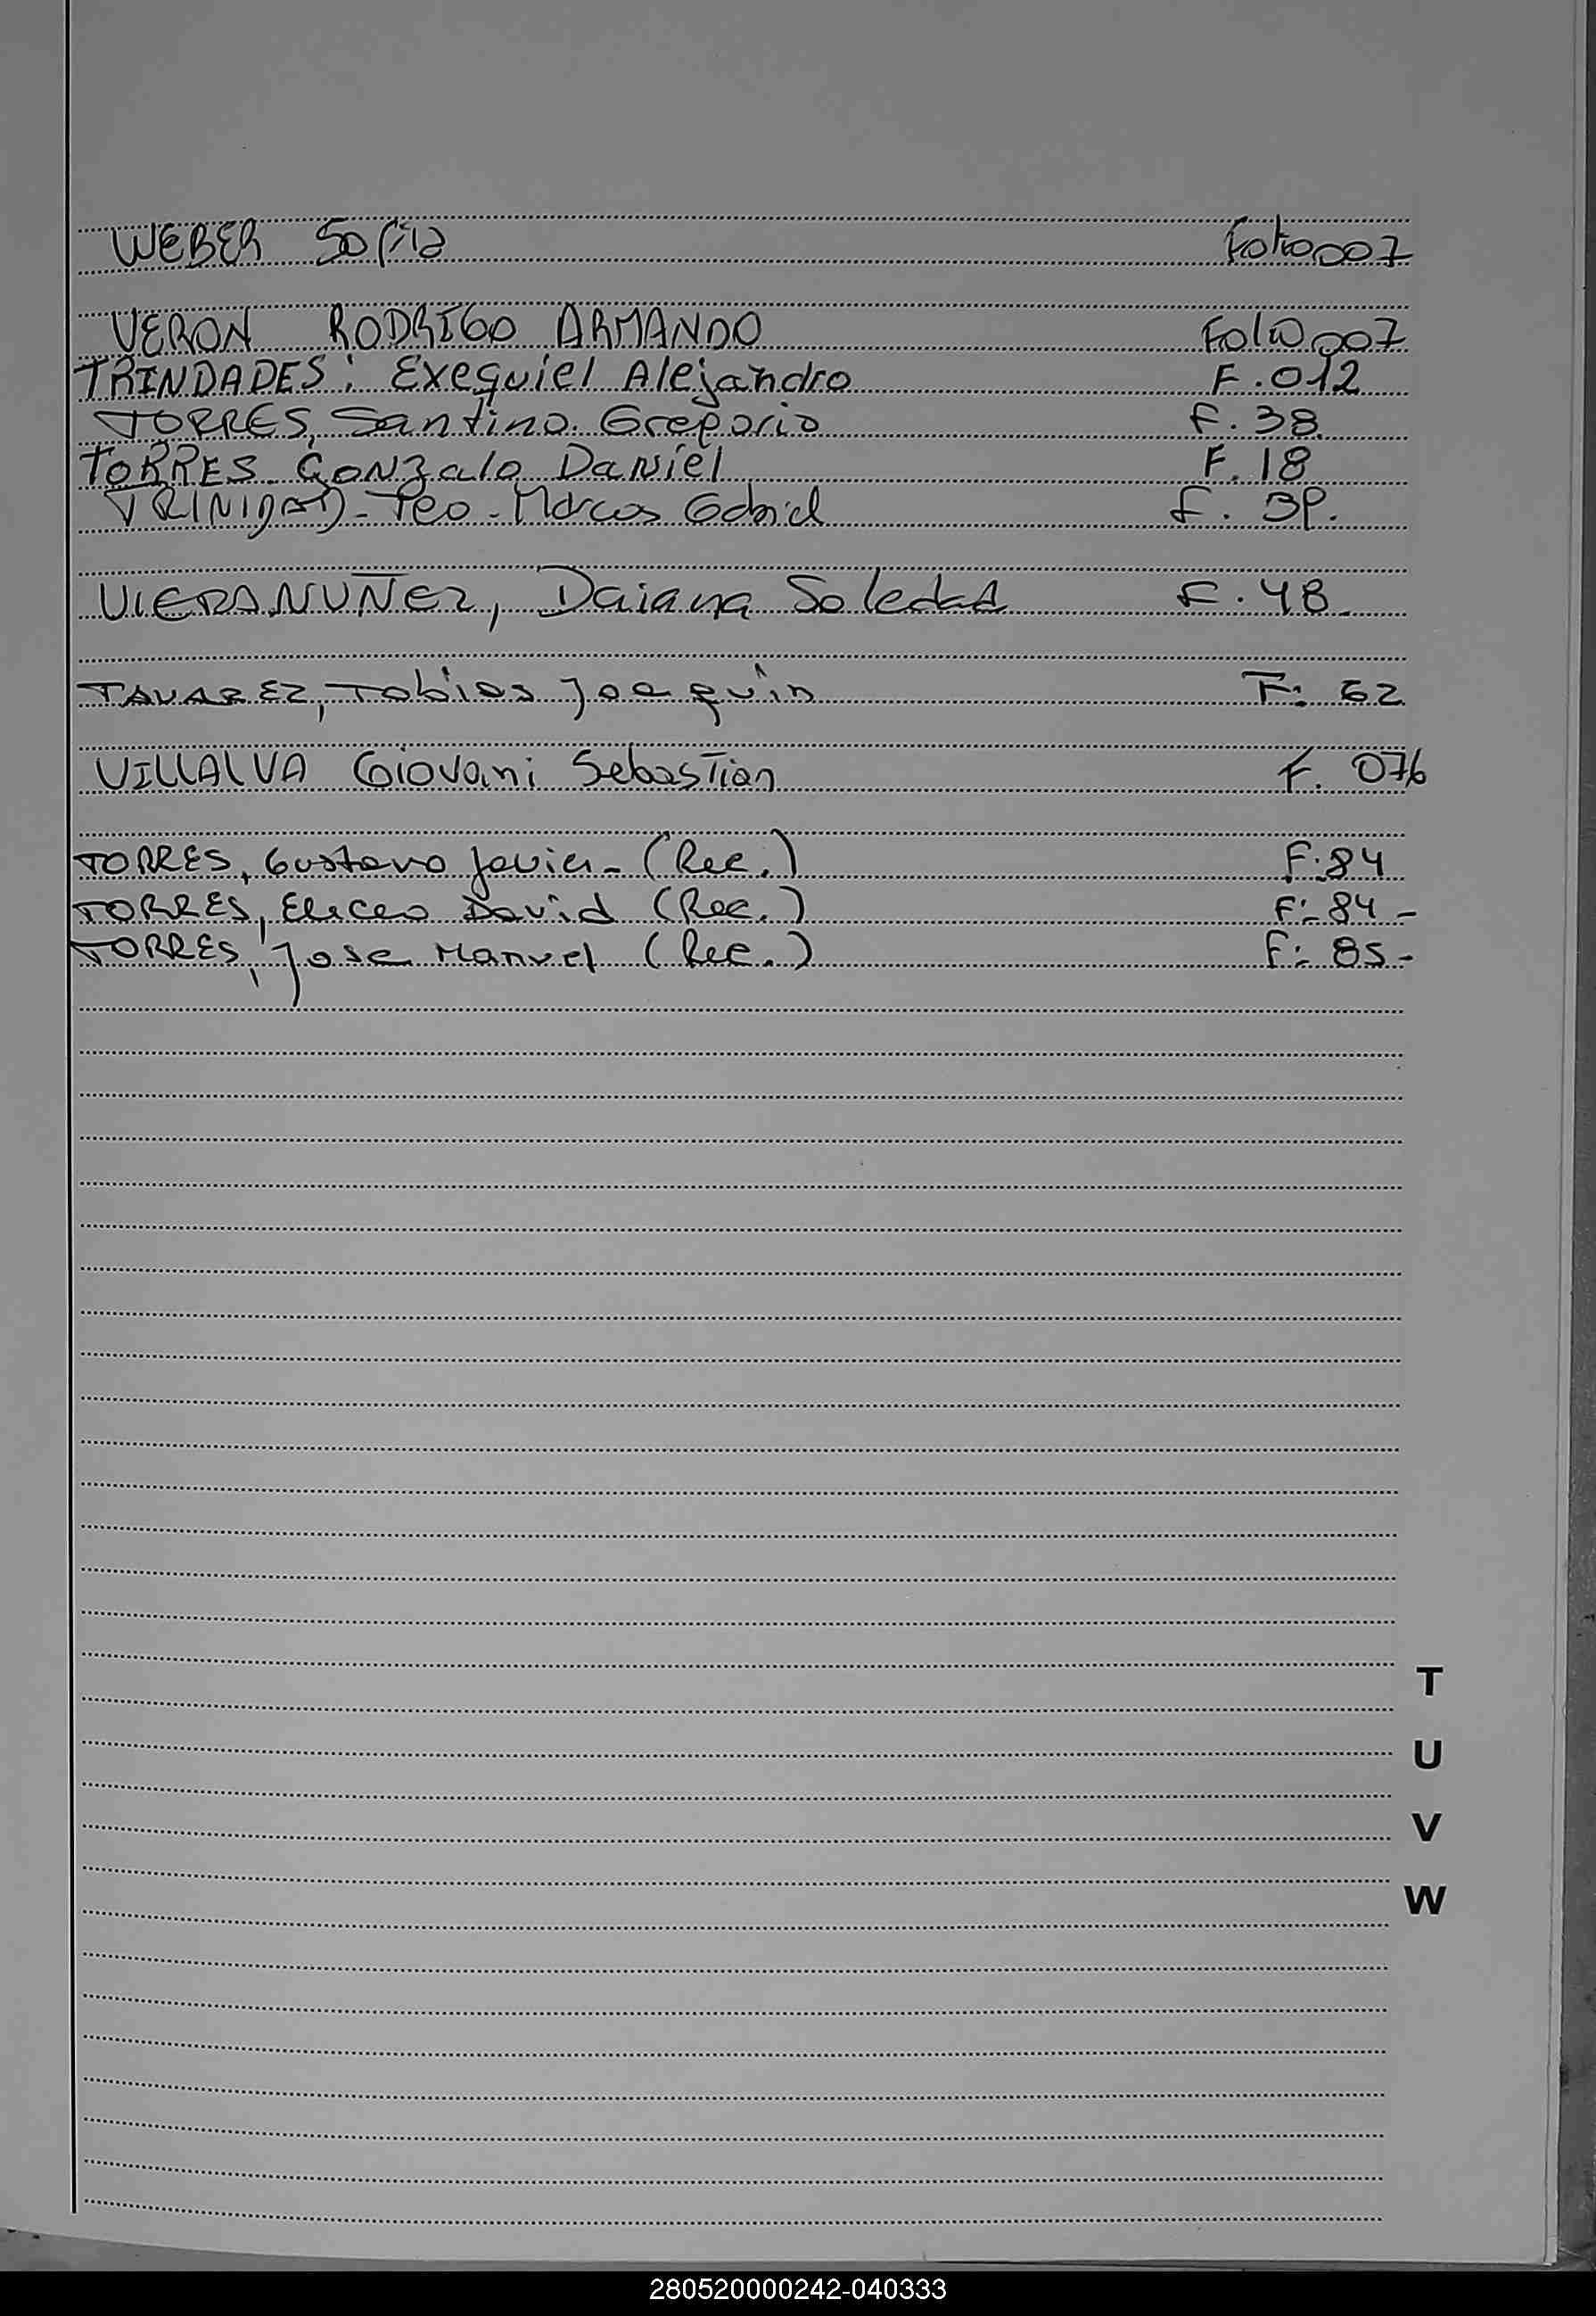 WEBER Sofia Folio 007
VERON RODRIGO ARMANDO Folio 007
TRINDADES: Exequiel Alejandro F. 012
TORRES, Santino Gregorio F. 38
TORRES Gonzalo Daniel F. 18
TRINIDAD - Marcos Gabriel F.
VIERA NUÑEZ, Daiana Soledad F. 48
TAVAREZ, Tobias Joaquin F: 62
VILLALVA Giovani Sebastian F. 076
TORRES, Gustavo Javier - (Rec.) F: 84
TORRES, Eliceo David (Rec.) F: 84 -
TORRES, Jose Manuel (Rec.) F: 85 -
T
U
V
W
280520000242-040333